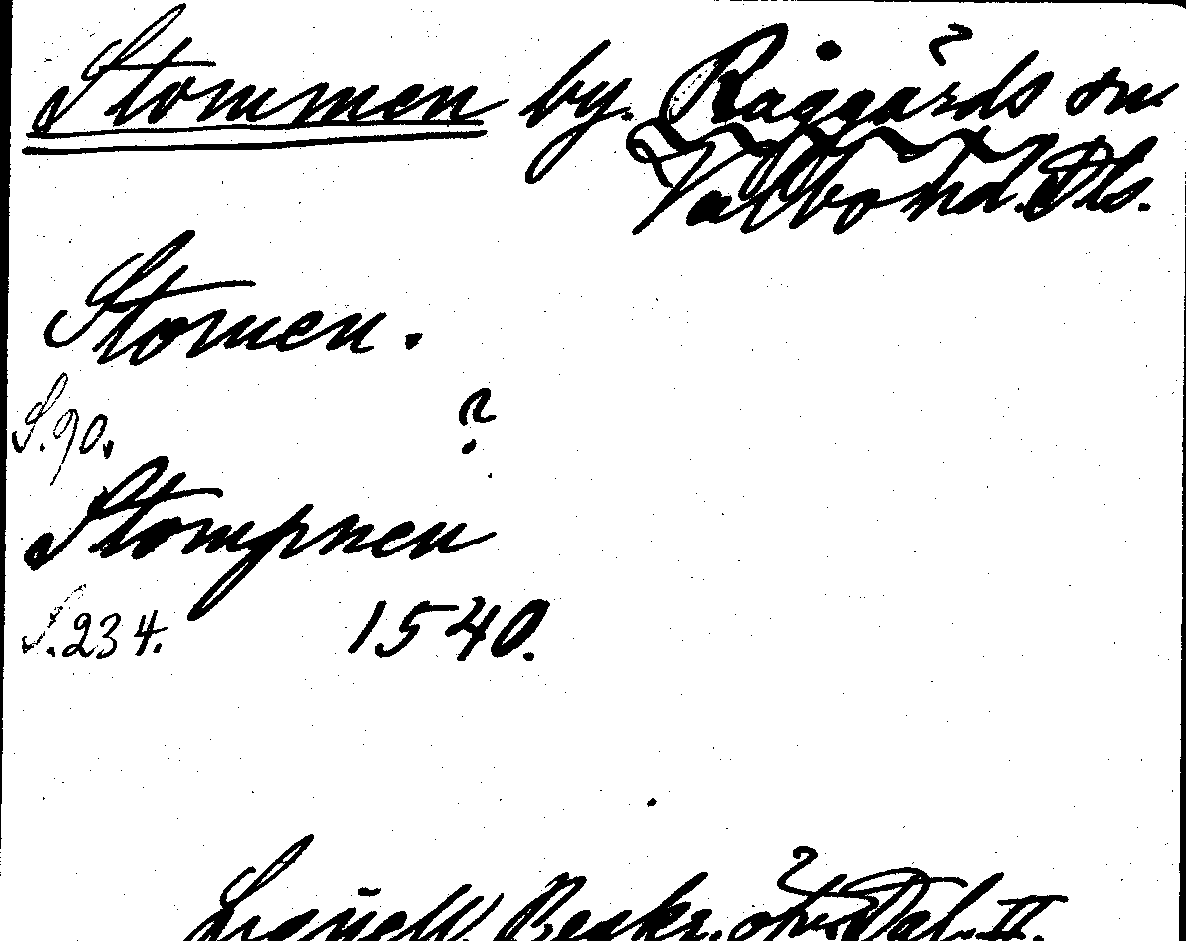 Stommen by. Råggärds sn.
Valbo hd. Dls.
Stomen.
S. 90. ?
Stompnen
S. 234. 1540.
Lignell, Beskr. öfv. Dal. II.